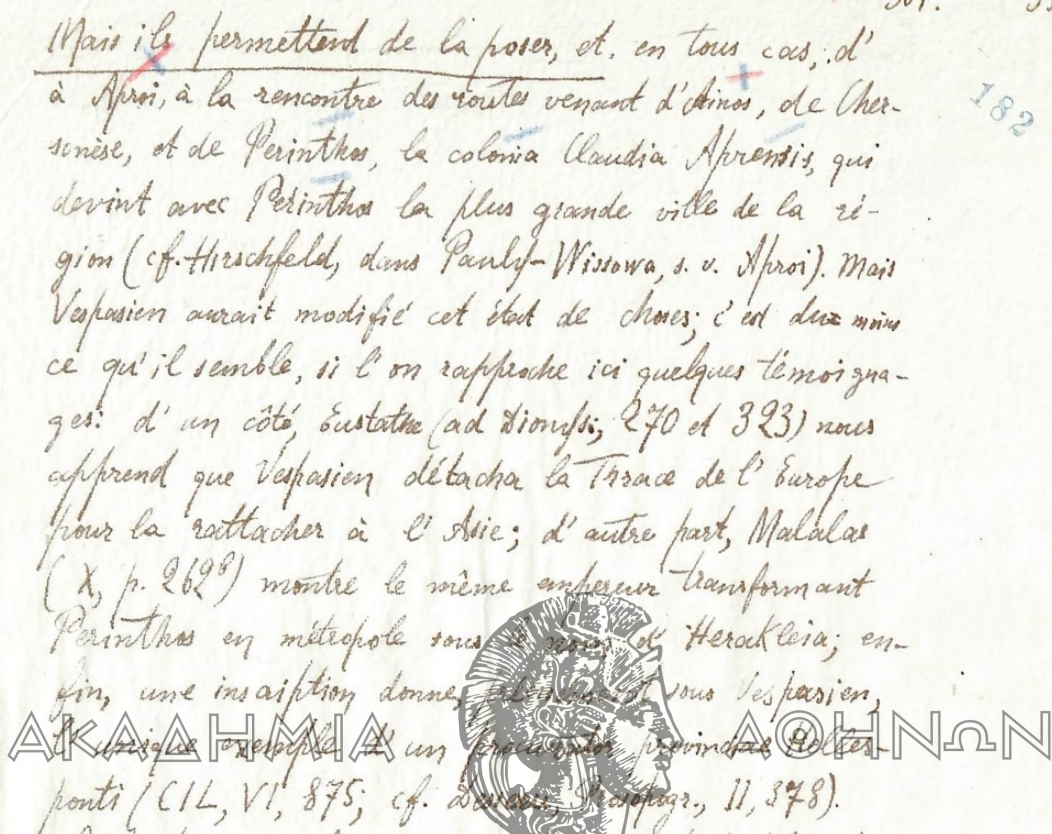 Mais ils permettent de la poser, et, en tous cas, d'
à Aproi, à la rencontre des routes venant d'Ainos, de Cher-
182
sonèse, et de Perinthos, la colonia Claudia Aprensis, qui
devint avec Perinthos la plus grande ville de la ré-
gion (cf. Hirschfeld, dans Pauly-Wissowa, s. v. Aproi). Mais
Vespasien aurait modifié cet état de choses; c'est du moins
ce qu'il semble, si l'on rapproche ici quelques témoigna-
ges: d'un côté, Eustathe (ad Dionys., 270 et 323) nous
apprend que Vespasien détacha la Thrace de l'Europe
pour la rattacher à l'Asie; d'autre part, Malalas
(X, p. 262⁸) montre le même empereur transformant
Perinthos en métropole sous le nom d'Herakleia; en-
fin, une inscription donne, sous Vespasien,
l'unique exemple d'un procurator provinciae Helles-
ponti (CIL, VI, 875; cf. Dessau, Prosopogr., II, 378).
ΑΚΑΔΗΜΙΑ ΑΘΗΝΩΝ